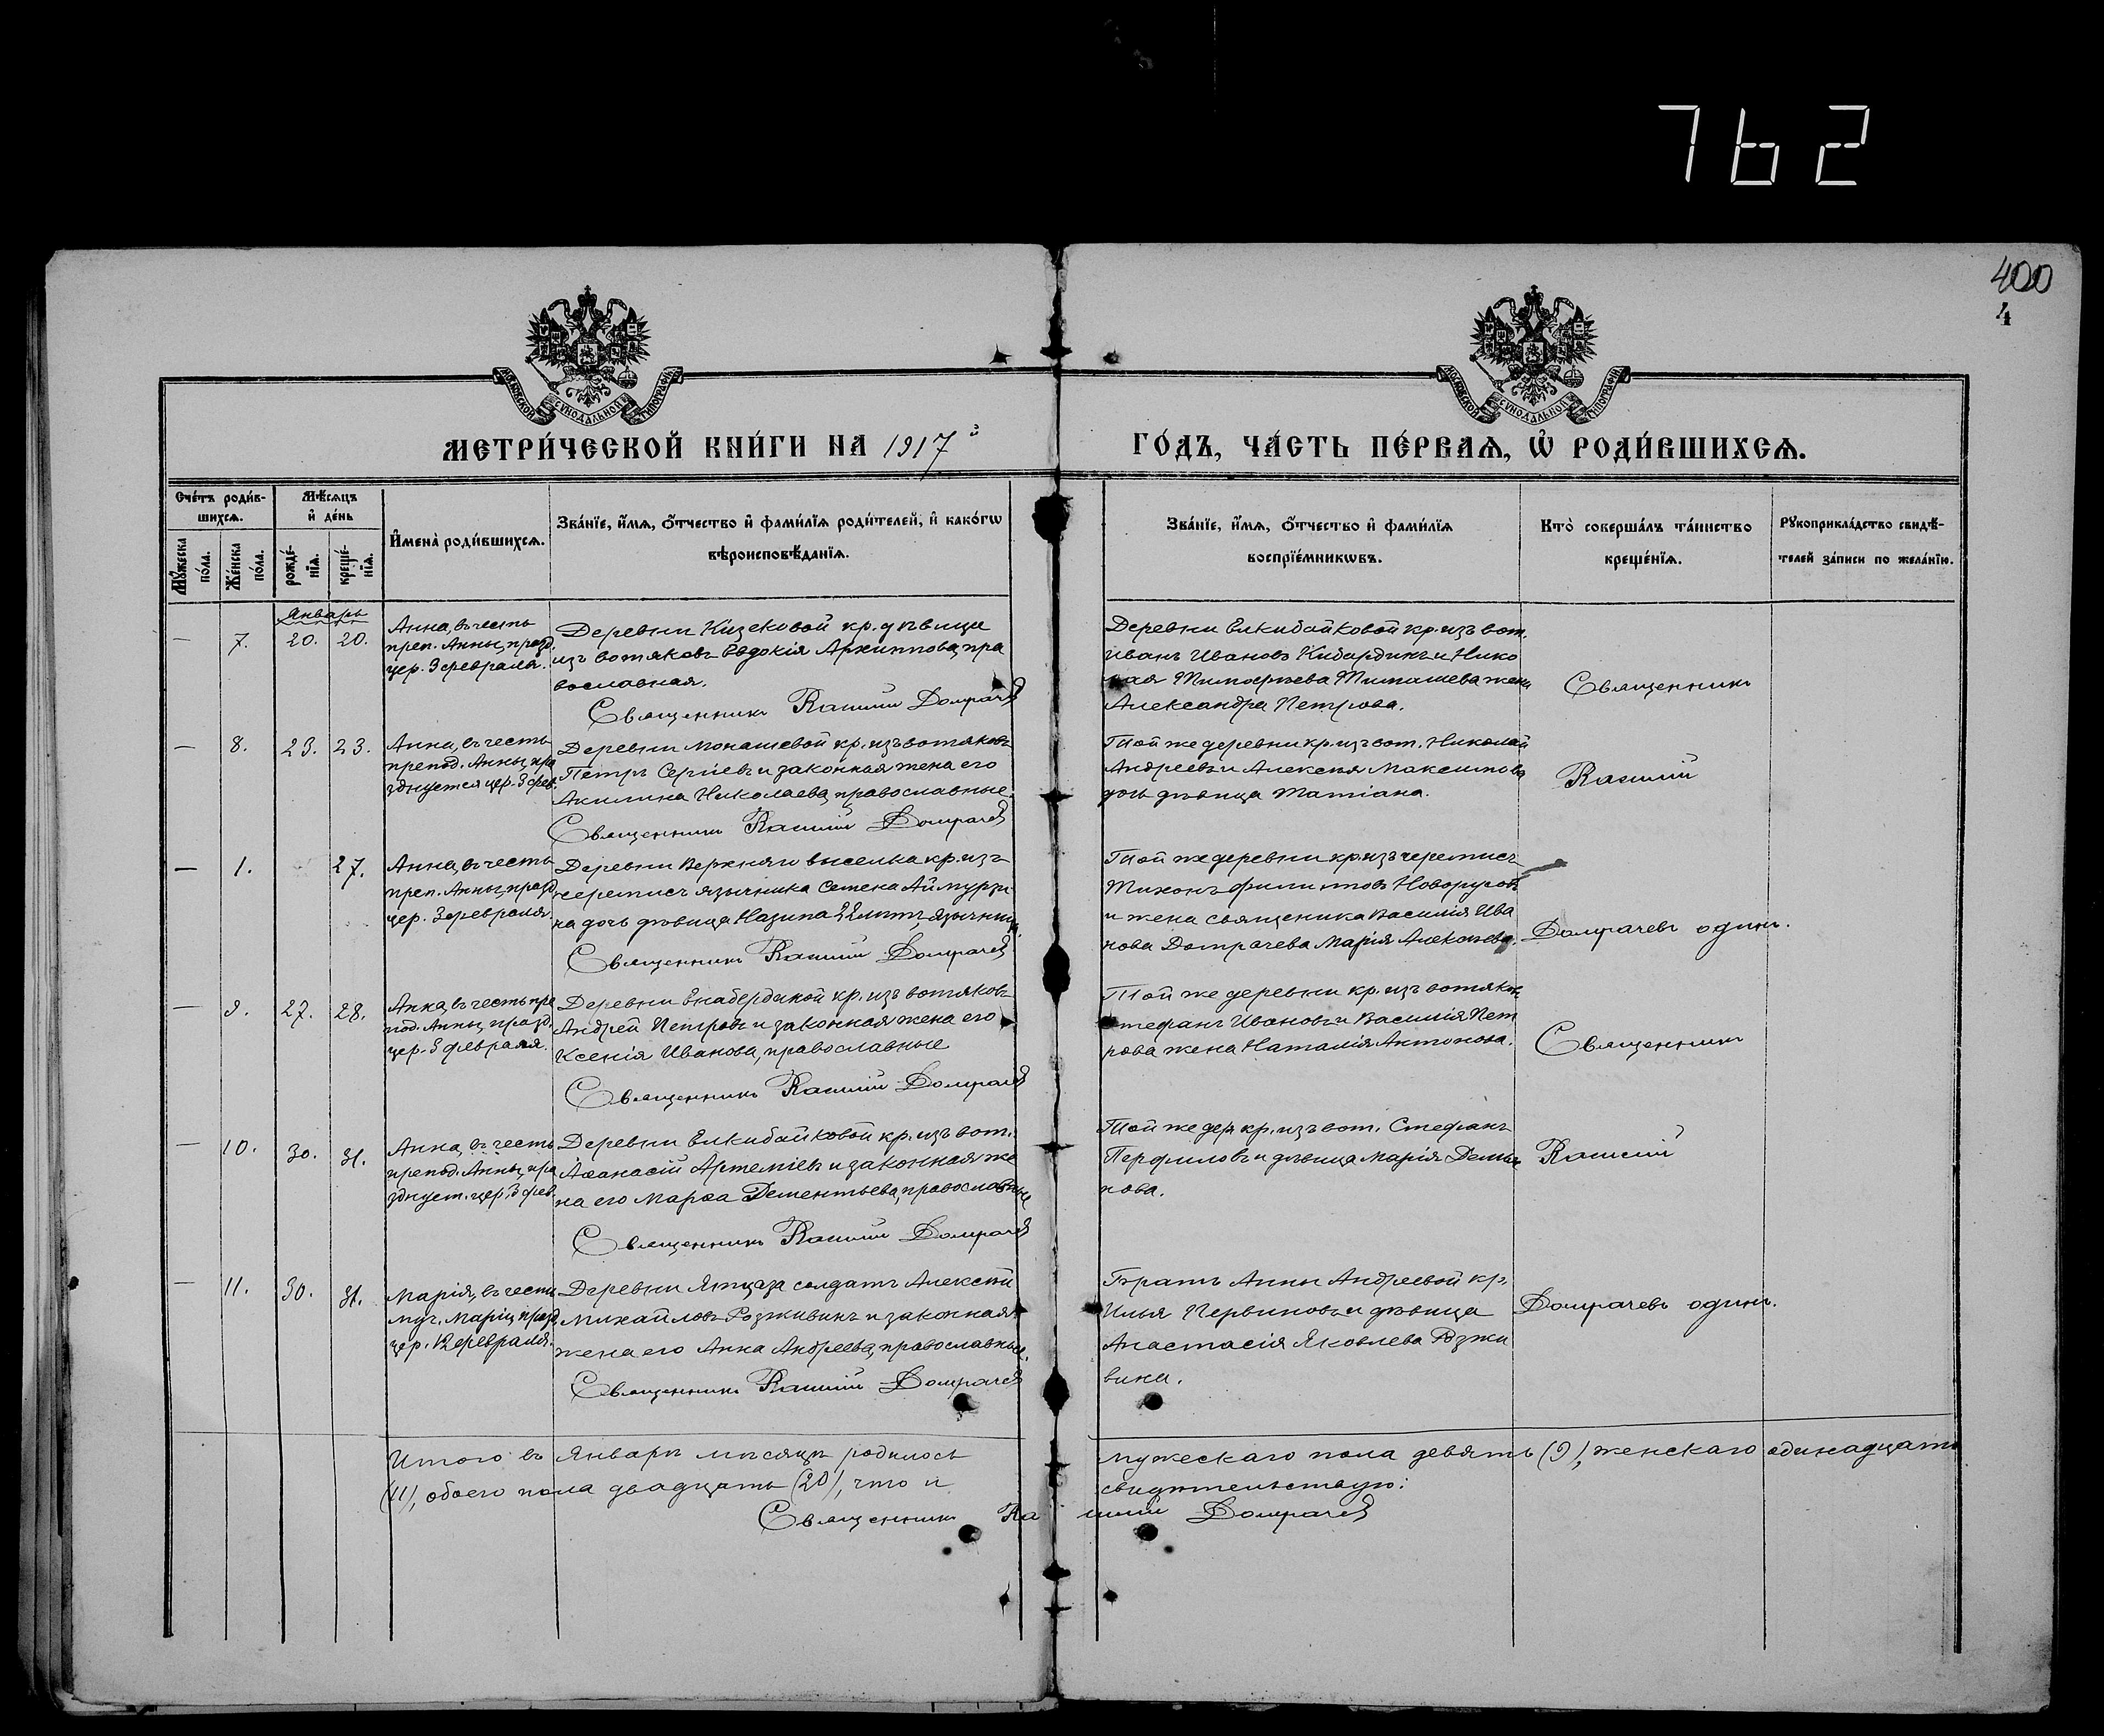 762
400
4
МОСКОВСКОЙ СУНОДАЛЬНОЙ ТИПОГРАФІИ
МОСКОВСКОЙ СУНОДАЛЬНОЙ ТИПОГРАФІИ
МЕТРИ́ЧЕСКОЙ КНИ́ГИ НА 1917й ГО́ДЪ, ЧА́СТЬ ПЕ́РВАѦ, Ѡ РОДИ́ВШИХСѦ.
Сче́тъ роди́в-
шихсѧ.
Мѣ́сѧцъ
и҆ де́нь
Мꙋ́жеска по́ла.
Же́нска по́ла.
рожде́-
нїѧ.
креще́-
нїѧ.
И҆мена̀ роди́вшихсѧ.
Зва́нїе, и҆́мѧ, о҆́тчество и҆ фами́лїѧ роди́телей, и҆ како́гѡ
вѣроисповѣ́данїѧ.
Зва́нїе, и҆́мѧ, о҆́тчество и҆ фами́лїѧ
воспрїе́мникѡвъ.
Кто̀ соверша́лъ та́инство
креще́нїѧ.
Рꙋкоприкла́дство свидѣ́-
телей за́писи по жела́нїю.
Январь
— 7. 20. 20.
Анна, въ честь
преп. Анны, празд.
цер. 3 февраля.
Деревни Кизековой кр. дѣвица
изъ вотяковъ Евдокія Архиппова, пра
вославная.
Священникъ Домрачев
Деревни Билкибайковой кр. изъ вот.
Иванъ Ивановъ Кибардинъ и Нико
лая Тимофѣева Тимашева жена
Александра Петрова.
Священникъ
— 8. 23. 23.
Анна, въ честь
препод. Анны, пра
зднуется цер. 3 фев.
Деревни Монашевой кр. изъ вотяковъ
Петръ Сергіевъ и законная жена его
Акилина Николаева, православные.
Священникъ Домрачев
Той же деревни кр. изъ вот. Николай
Андреевъ и Алексѣя Максимова
дочь дѣвица Татіана.
— 1. 27.
Анна, въ честь
преп. Анны, празд.
цер. 3 февраля.
Деревни Верхняго выселка кр. изъ
черемисъ язычника Семена Аймурзи
на дочь дѣвица Назипа 22 лѣтъ, язычница.
Священникъ Домрачев
Той же деревни кр. изъ черемисъ
Тихонъ Филипповъ
и жена священика Василія Ива
нова Домрачева Марія Алексѣева.
Домрачевъ одинъ.
— 9. 27. 28.
Анна, въ честь пре
под. Анны, празд.
цер. 3 февраля.
Деревни Енабердиной кр. изъ вотяковъ
Андрей Петровъ и законная жена его
Ксенія Иванова, православные
Священникъ Домрачев
Той же деревни кр. изъ вотяков.
Стефанъ Ивановъ и Василія Пет
рова жена Наталія Антонова.
Священникъ
— 10. 30. 31.
Анна, въ честь
препод. Анны, пра
зднует. цер. 3 фев.
Деревни Билкибайковой кр. изъ вот.
Аѳанасій Артеміевъ и законная же
на его Марѳа Дементьева, православные
Священникъ Домрачев
Той же дер. кр. изъ вот. Стефанъ
Перфиловъ и дѣвица Марія Демья
нова.
— 11. 30. 31.
Марія, въ честь
муч. Маріи, празд.
цер. 12 февраля.
Деревни Ятцаза солдатъ Алексѣй
Михайловъ Розживинъ и законная
жена его Анна Андреева, православные.
Священникъ Домрачев
Братъ Анны Андреевой кр.
Илья Первиновъ и дѣвица
Анастасія Яковлева Розжи
вина.
Домрачевъ одинъ.
Итого въ Январѣ мѣсяцѣ родилось мужескаго пола девять (9), женскаго одинадцать
(11), обоего пола двадцать (20), что и свидѣтельствую:
Священникъ Домрачев